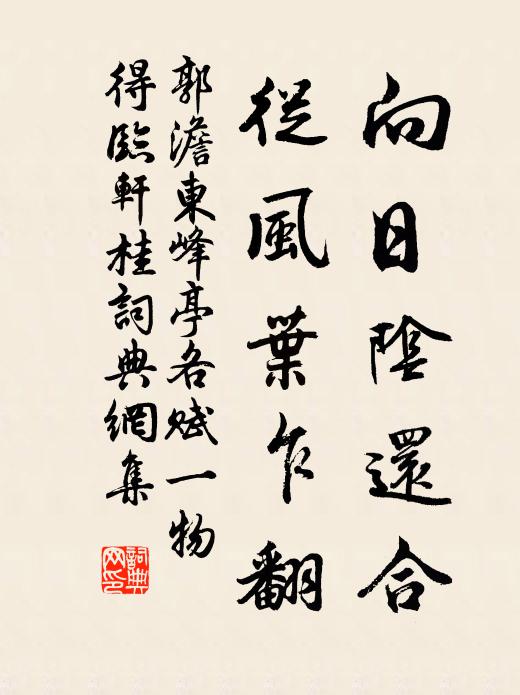 向日陰還合
從風葉乍翻
郭澹東峰亭各賦一物
得臨軒桂詞典網集
詞典网印